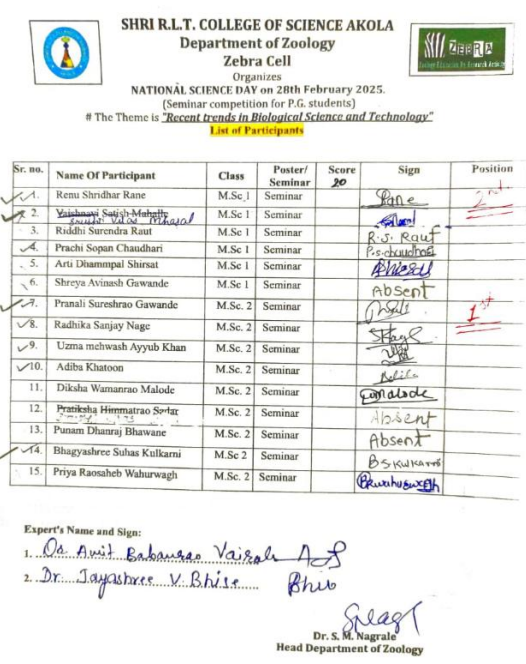 SHRI R.L.T. COLLEGE OF SCIENCE AKOLA
Department of Zoology
Zebra Cell
Organizes
NATIONAL SCIENCE DAY on 28th February 2025.
(Seminar competition for P.G. students)
# The Theme is "Recent trends in Biological Science and Technology"
List of Participants
ZEBRA
Sr. no. Name Of Participant Class Poster/ Seminar Score 20 Sign Position
1. Renu Shridhar Rane M.Sc 1 Seminar Rane 2nd
2. Vaishnavi Satish Mahalle M.Sc 1 Seminar
Vilas Mhasal
3. Riddhi Surendra Raut M.Sc 1 Seminar R.S. Raut
4. Prachi Sopan Chaudhari M.Sc 1 Seminar P.S. chaudhari
5. Arti Dhammpal Shirsat M.Sc 1 Seminar
6. Shreya Avinash Gawande M.Sc 1 Seminar Absent
7. Pranali Sureshrao Gawande M.Sc. 2 Seminar 1st
8. Radhika Sanjay Nage M.Sc. 2 Seminar
9. Uzma mehwash Ayyub Khan M.Sc. 2 Seminar
10. Adiba Khatoon M.Sc. 2 Seminar
11. Diksha Wamanrao Malode M.Sc. 2 Seminar
12. Pratiksha Himmatrao M.Sc. 2 Seminar Absent
13. Punam Dhanraj Bhawane M.Sc. 2 Seminar Absent
14. Bhagyashree Suhas Kulkarni M.Sc 2 Seminar
15. Priya Raosaheb Wahurwagh M.Sc. 2 Seminar
Expert's Name and Sign:
1. Amit Babanrao
2. Dr. Jayashree V. Bhise
Dr. S. M. Nagrale
Head Department of Zoology